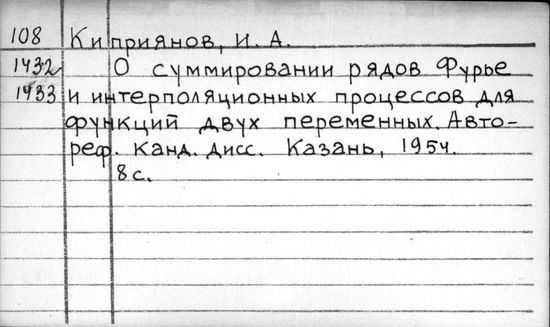 108 Киприянов, И. А.
1432 О суммировании рядов Фурье
1933 и интерполяционных процессов для
функций двух переменных. Авто-
реф. канд. дисс. Казань, 1954.
8 с.